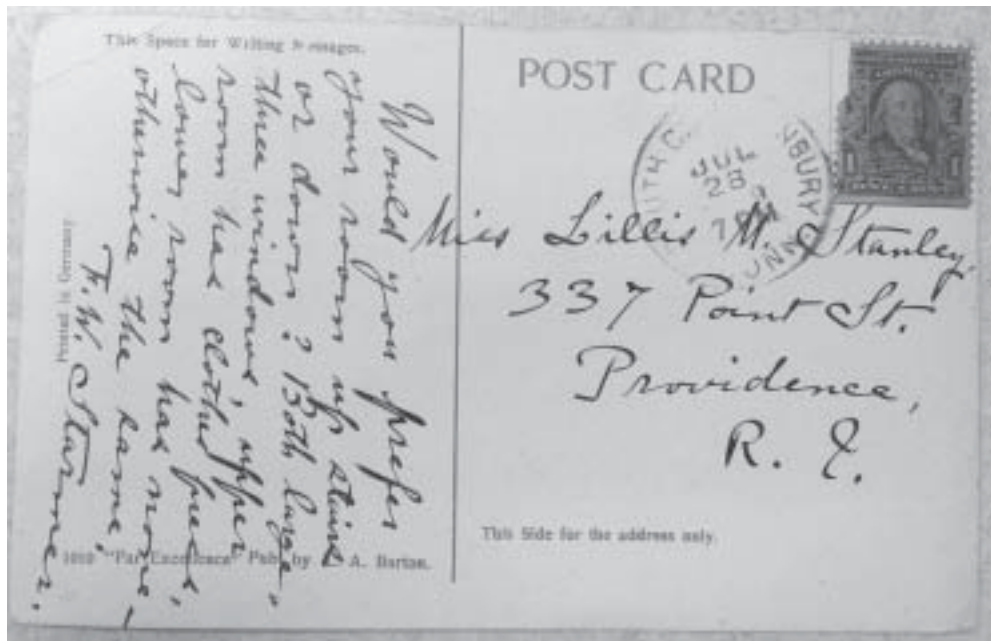 This Space for Writing Messages.
Would you prefer
your room up stairs
or down? Both large,
three windows, upper
room has clothes press,
lower room has none –
otherwise the same.
F. W. Starmer.
Printed in Germany
1010 "Par Excellence" Pub. by A. Barton.
POST CARD
JUL
28
7
Miss Lillis M. Stanley.
337 Point St.
Providence,
R. I.
This Side for the address only.
1